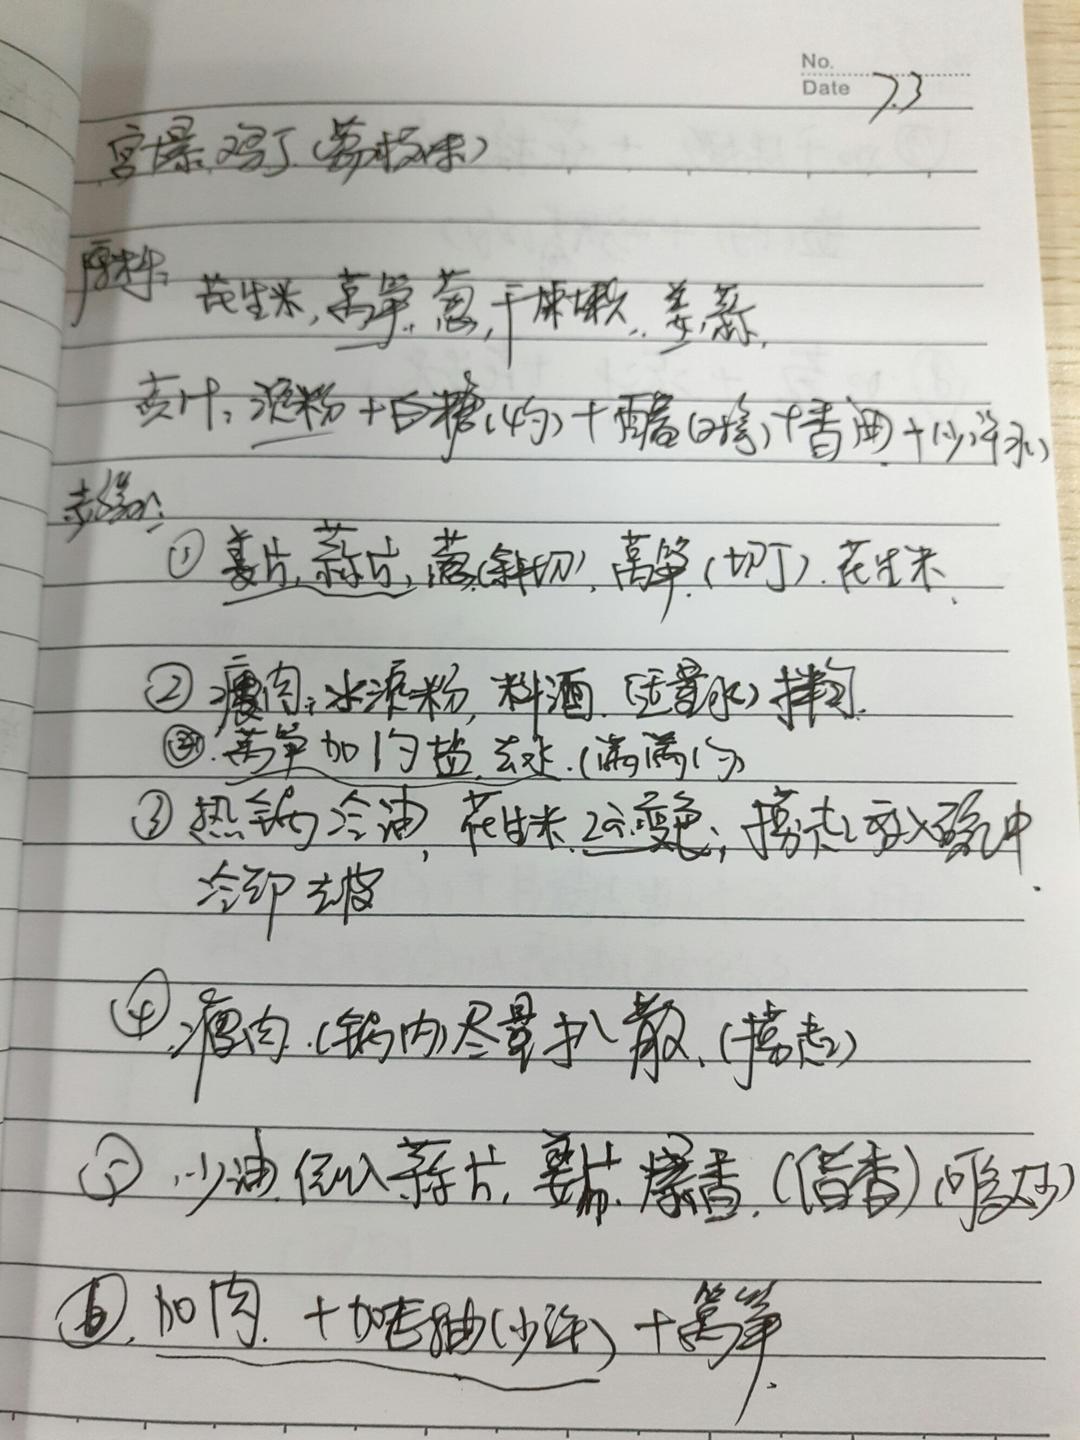 No.
Date 7.3
宫爆鸡丁(荔枝味)
原料:
花生米,莴笋,葱,干辣椒,姜,蒜,
芡汁:淀粉+白糖(4勺)+醋(2勺)+香油+(少许水)
步骤:
① 姜片,蒜片,葱(斜切),莴笋(切丁).花生米.
② 瘦肉:水淀粉,料酒.(适量水)拌匀.
莴笋加1勺盐,去水.(满满1勺)
③ 热锅冷油,花生米.变色;捞起放入碗中.
冷却去皮
④ 瘦肉.(锅内)尽量扒散.(捞起)
⑤ 少油,倒入蒜片,姜片,爆香.
⑥.加肉.+加老抽(少许)+莴笋.